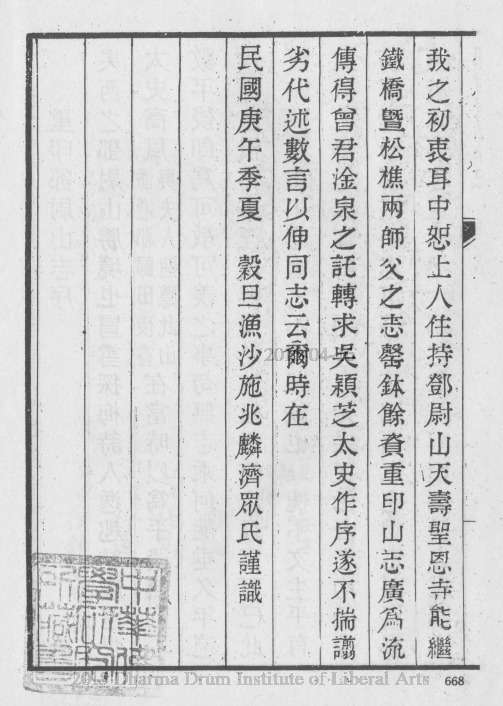 我之初衷耳中恕上人住持鄧尉山天壽聖恩寺能繼
鐵橋暨松樵兩師父之志罄鉢餘資重印山志廣爲流
傳得曾君淦泉之託轉求吳穎芝太史作序遂不揣譾
劣代述數言以伸同志云爾時在
民國庚午季夏　穀旦漁沙施兆麟濟眾氏謹識
2013 Dharma Drum Institute of Liberal Arts
668